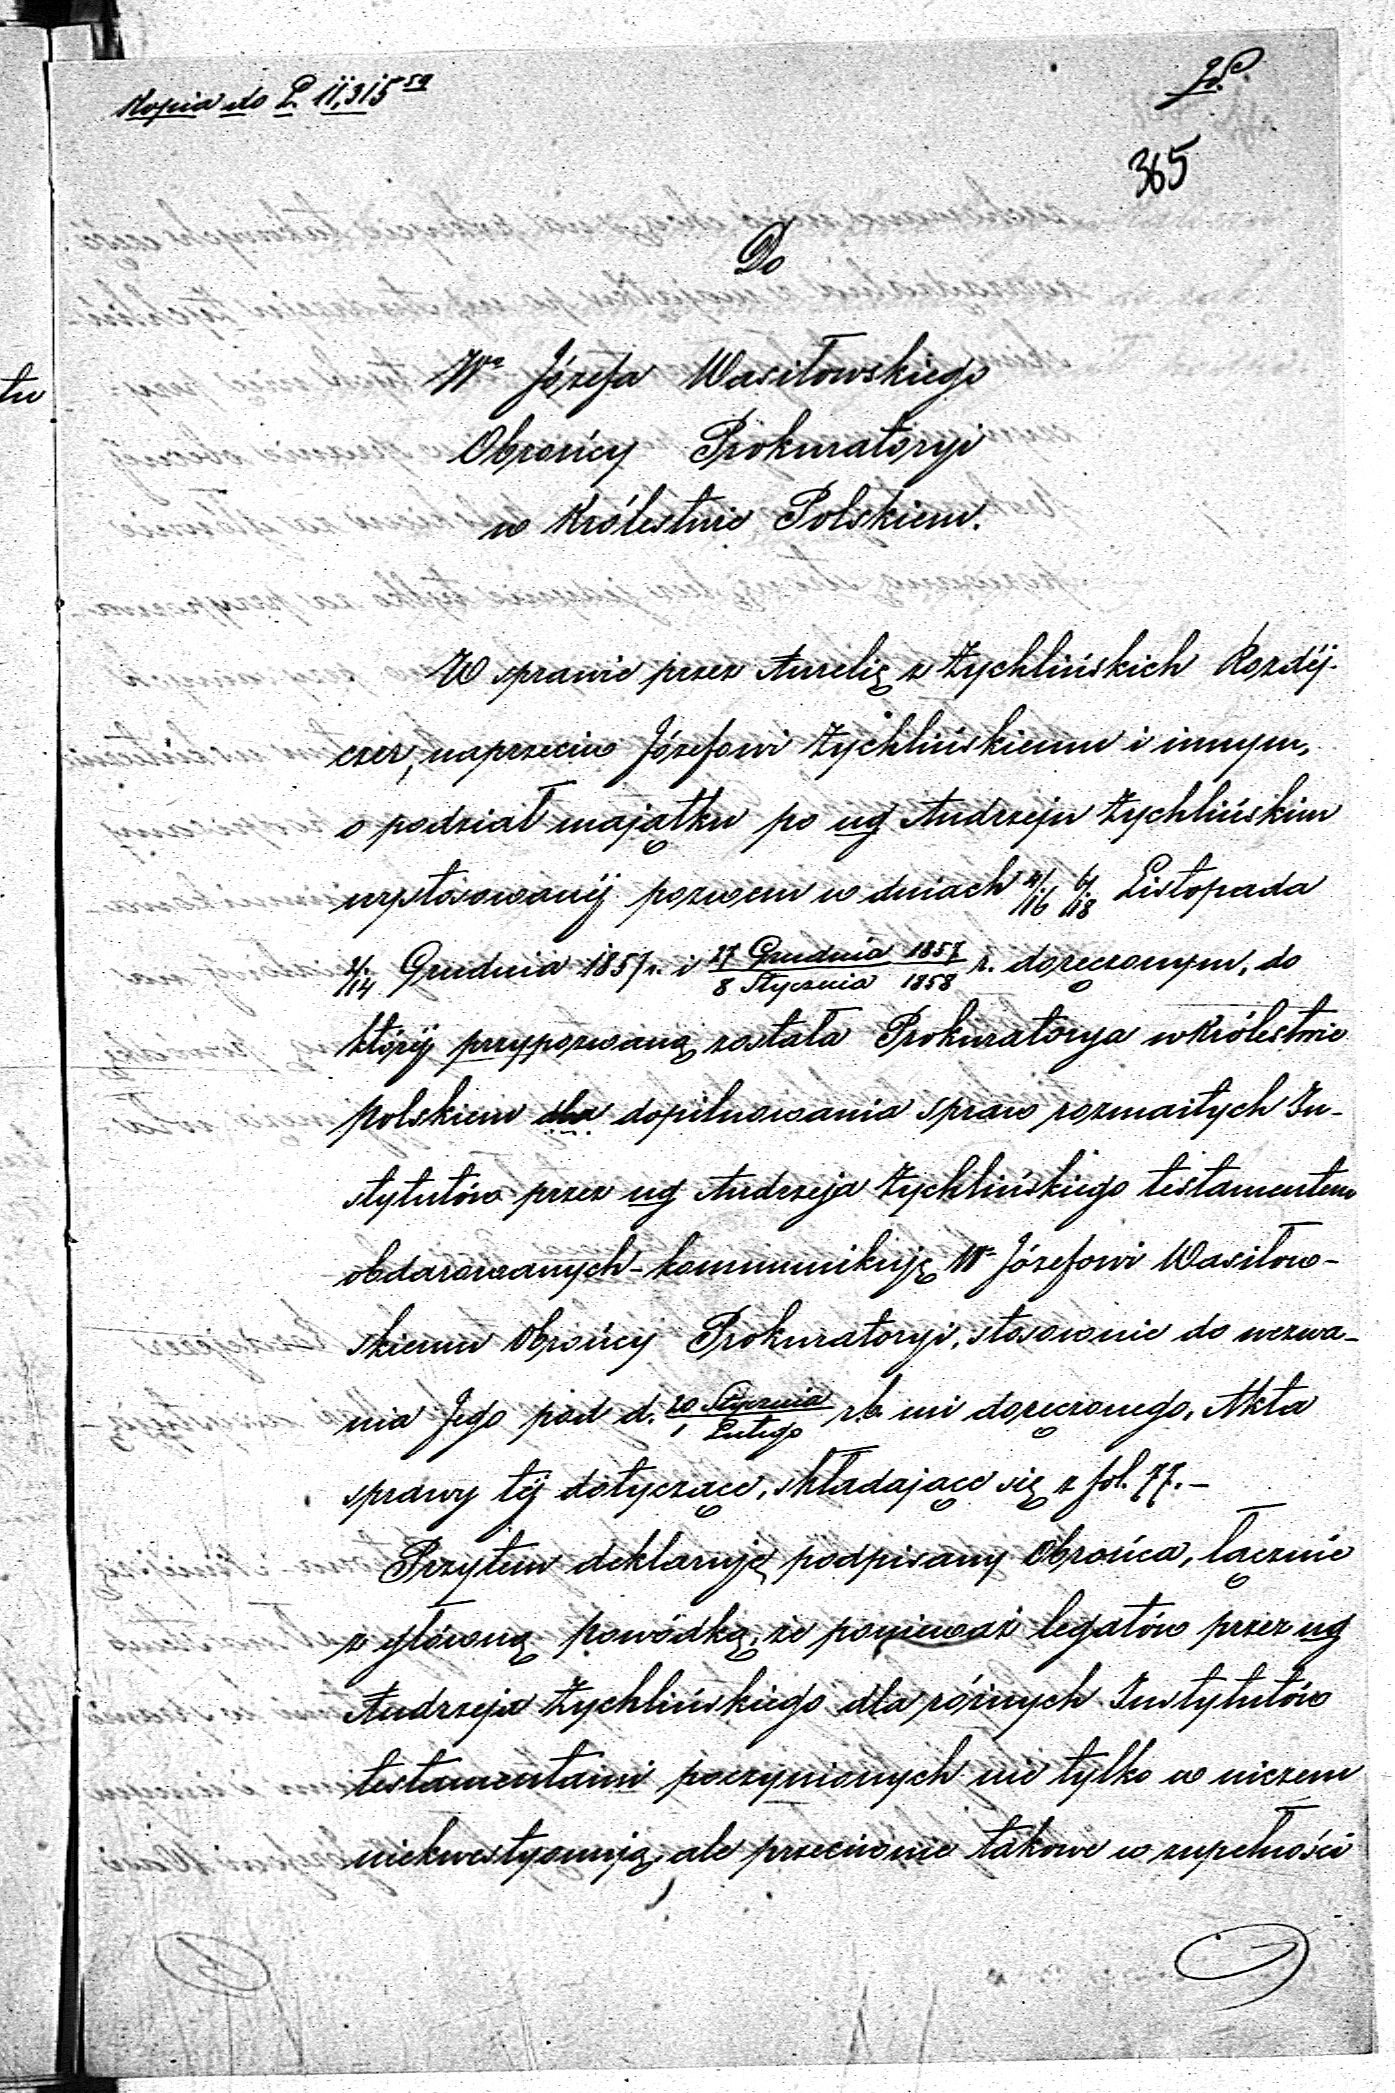 Kopia do L. 11,315 59
365
Do
Wo Józefa Wasiłowskiego
Obrońcy Prokuratoryi
w Królestwie Polskiem.
W sprawie przez Aurelię z Żychlińskich Rozdéj-
czer, naprzeciw Józefowi Żychlińskiemu i innym,
o podział majątku po ug Andrzeju Żychlińskim
wystosowanéj pozwem w dniach 4/16 6/18 Listopada
2/14 Grudnia 1857 r. i 27 Grudnia 1857 / 8 Stycznia 1858 r. doręczonym, do
któréj przypozwaną została Prokuratorya w Królestwie
Polskiem dla dopilnowania spraw rozmaitych In-
stytutów przez ug Andrzeja Żychlińskiego testamentem
obdarowanych - kommunikuję Wu Józefowi Wasiłow-
skiemu Obrońcy Prokuratoryi, stosownie do wezwa-
nia Jego pod d. 20 Stycznia / 1 Lutego r.b. mi doręczonego, Akta
sprawy téj dotyczące, składające się z fol. 77. -
Przytem deklaruję podpisany Obrońca, łącznie
z główną powódką, że ponieważ legatów przez ug
Andrzeja Żychlińskiego dla różnych Instytutów
testamentami poczynionych nie tylko w niczem
niekwestyonują, ale przeciwnie takowe w zupełności